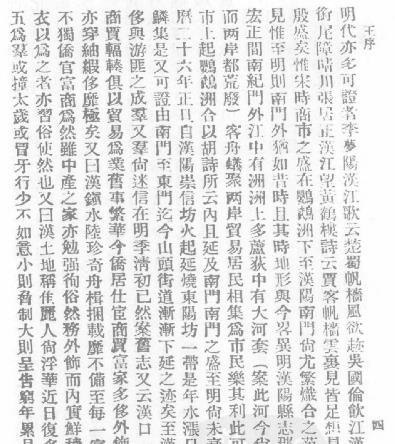 王序
四
明代亦多可證者李夢陽漢江歌云楚蜀帆檣風欲趂吳國倫飮江漢
銜尾障晴川張居正漢江望黃鶴樓詩云賈客帆檣雲裏見皆足想見
殷盛矣惟宋時商市之盛在鸚鵡洲下至漢陽南門尙尤繁熾合之
見惟至明則南門外猶如昔時且其時地形與今畧異明漢陽縣志
宏正間南紀門外江中有洲洲上多蘆荻中有大河套（案此河今
而兩岸都荒廢）客舟蟻聚兩岸貿易居民相集爲市民樂其利此可
市上起鸚鵡洲合以胡詩所云內且延及南門南門之盛至明尙未
曆二十六年正旦自漢陽崇信坊火起延燒東陽坊一帶是年水漲
鱗集是又可證由南門至東門迄今山頭街道漸漸下延之跡矣至漢
侈與游匪之成羣又羣尙迷信在明季淸初已然案舊志又云漢口
商賈輻輳俱以貿易爲業舊事繁華今僑居仕宦商賈富家多侈外飾
亦穿紬緞侈靡極矣又曰漢鎭水陸珍奇舟楫捆載靡不備至每一
不獨僑宦富商爲然雖中產之家亦勉强徇俗然務外飾而內實鮮
衣以爲之者亦習俗使然也又曰漢土地稱隹麗人尙浮華近日復多
五爲羣或撞太歲或冒牙行少不如意小則脅制大則呈告窮年累月